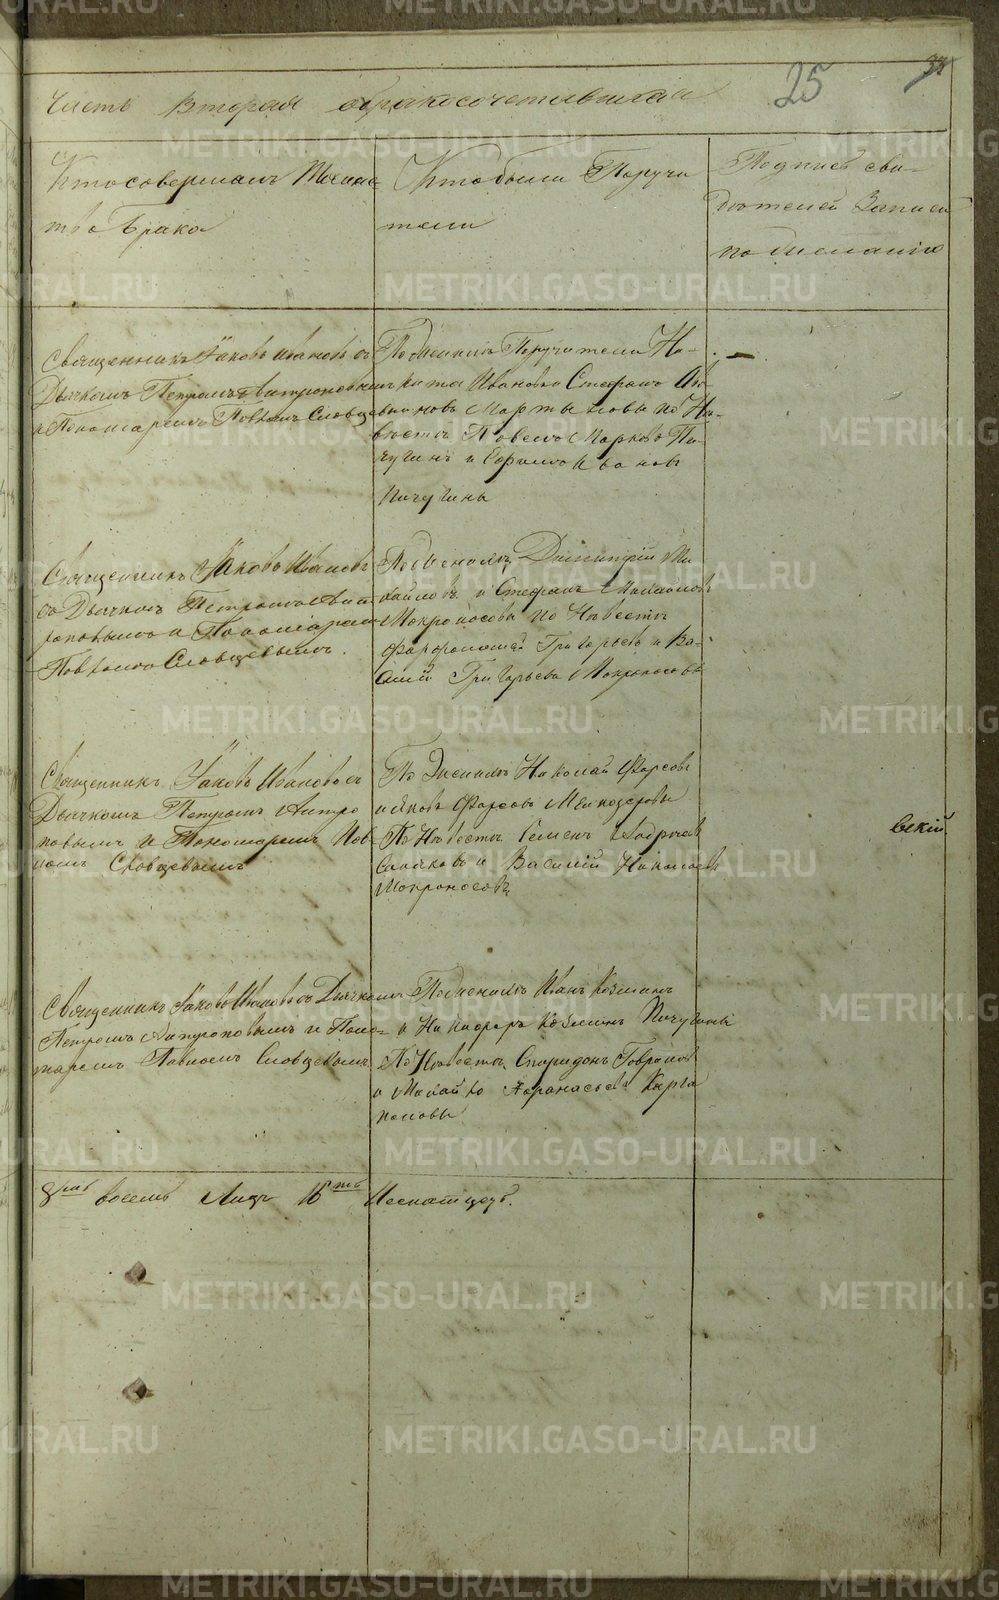 25
Часть вторая о бракосочетавшихся
Кто совершалъ Таинс-
тво Брака
Кто были Поручи
тели
Подпись сви-
дѣтелей Записи
по желанію
Священникъ Іаковъ Ивановъ съ
Дьячкомъ Петромъ Антроповымъ
и Пономаремъ Павломъ Словцевымъ
По Женихѣ Поручители Ни-
кита Ивановъ Стефанъ
Мартыновы по Не-
вѣстѣ Павелъ Марковъ Пи-
чугинъ и Ефимъ Ивановъ
Пичугины
Священникъ Іаковъ Ивановъ
съ Дьячкомъ Петромъ Ант
роповымъ и Пономаремъ
Павломъ Словцевымъ.
По Женихѣ Димитрій Ми
хайловъ и Стефанъ Михайловъ
Мокроносовы по Невѣстѣ
Григорьевъ и Ва-
силій Григорьевъ Мокроносовы
Священникъ Іаковъ Ивановъ съ
Дьячкомъ Петромъ Антро
повымъ и Пономаремъ Пав
ломъ Словцевымъ
По Женихѣ Николай Фирсовъ
и Яковъ Фирсовъ
По Невѣстѣ Семенъ
и Василій Николаевъ
Мокроносовъ
вскій
Священникъ Іаковъ Ивановъ съ Дьячкомъ
Петромъ Антроповымъ и Поно-
маремъ Павломъ Словцевымъ
По Женихѣ Иванъ Козминъ
и Никифоръ Козминъ Пичугины
По Невѣстѣ Спиридонъ Гавриловъ
и Михайло Афанасьевъ Карга
половы
8мь восемь Лицъ 16ть Шеснатцеть.
METRIKI.GASO-URAL.RU